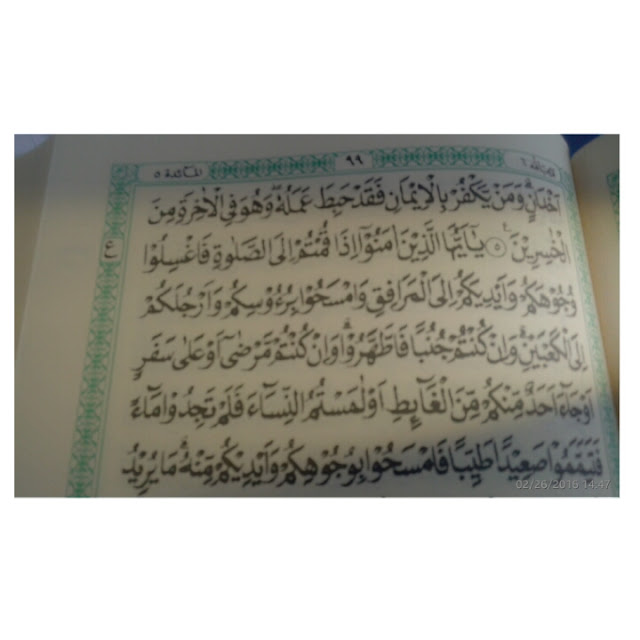 المائدة ٥ ٩٩ لا يحب الله ٦
اَخْدَانٍ ۗ وَمَنْ يَّكْفُرْ بِالْاِيْمَانِ فَقَدْ حَبِطَ عَمَلُهٗ ۖ وَهُوَ فِى الْاٰخِرَةِ مِنَ
الْخٰسِرِيْنَ ۝٥ يٰٓاَيُّهَا الَّذِيْنَ اٰمَنُوْٓا اِذَا قُمْتُمْ اِلَى الصَّلٰوةِ فَاغْسِلُوْا
ع
وُجُوْهَكُمْ وَاَيْدِيَكُمْ اِلَى الْمَرَافِقِ وَامْسَحُوْا بِرُءُوْسِكُمْ وَاَرْجُلَكُمْ
اِلَى الْكَعْبَيْنِ ۗ وَاِنْ كُنْتُمْ جُنُبًا فَاطَّهَّرُوْا ۗ وَاِنْ كُنْتُمْ مَّرْضٰٓى اَوْ عَلٰى سَفَرٍ
اَوْ جَآءَ اَحَدٌ مِّنْكُمْ مِّنَ الْغَآئِطِ اَوْ لٰمَسْتُمُ النِّسَآءَ فَلَمْ تَجِدُوْا مَآءً
فَتَيَمَّمُوْا صَعِيْدًا طَيِّبًا فَامْسَحُوْا بِوُجُوْهِكُمْ وَاَيْدِيْكُمْ مِّنْهُ ۗ مَا يُرِيْدُ
02/26/2016 14:47